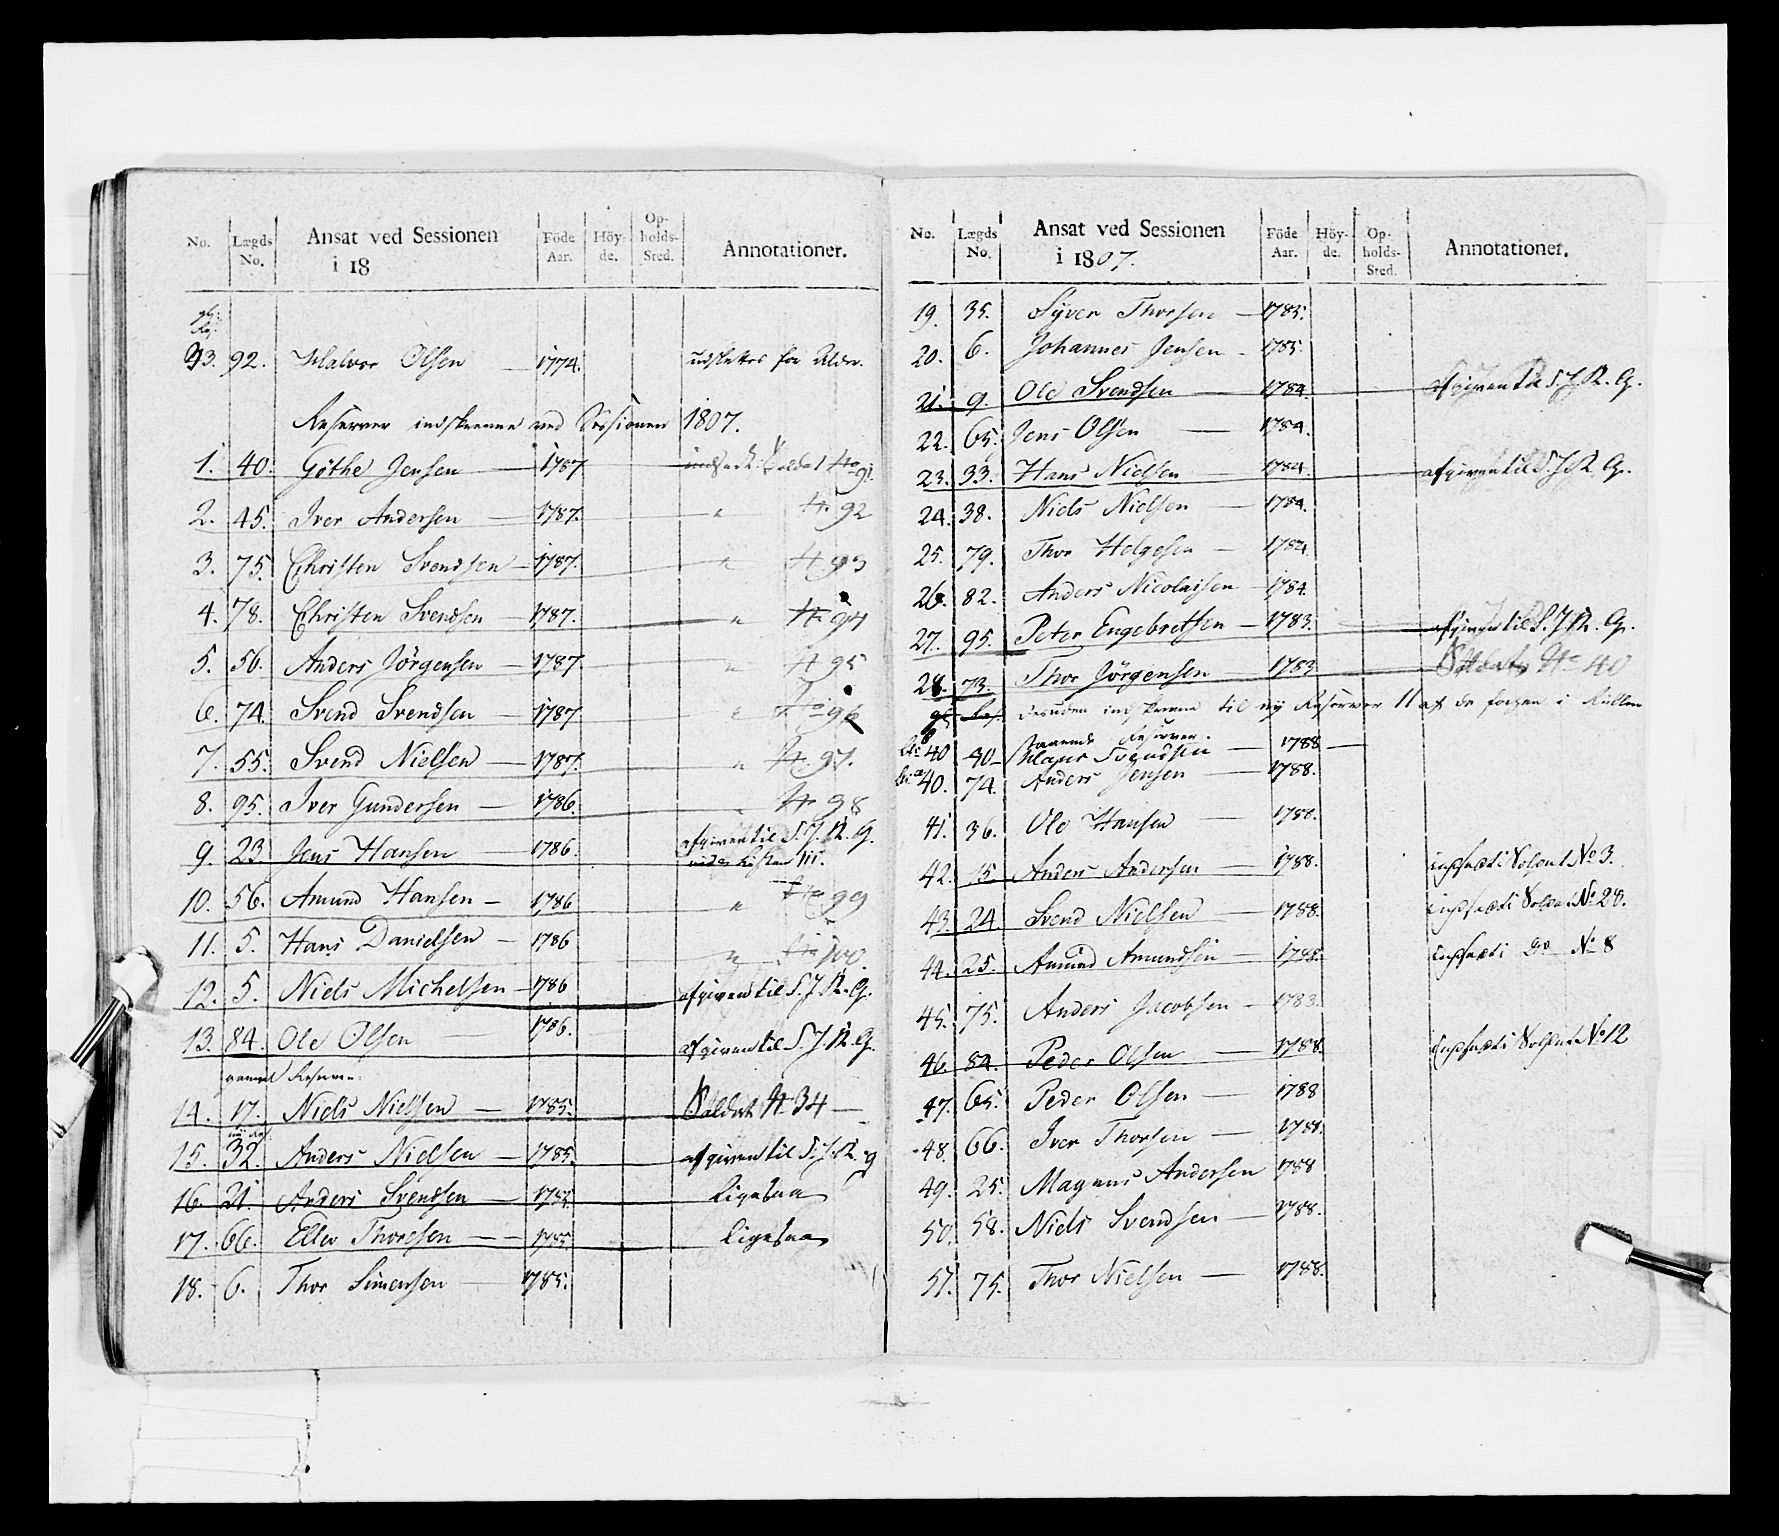 No. Lægds No. Ansat ved Sessionen i 18 Föde Aar. Höy-de. Op-holds-Sted. Annotationer.
93. 92. Halvor Olsen — 1774. udslettes for Alder.
Reserver indskrevne ved Sessionen 1807.
1. 40. Göthe Jensen — 1787 indsadt Soldat No 91.
2. 45. Iver Andersen — 1787. " No 92
3. 75. Christen Svendsen — 1787. " No 93
4. 78. Christen Svendsen — 1787. " No 94
5. 56. Anders Jörgensen — 1787 " No 95
6. 74. Svend Svendsen — 1787 " No 96
7. 55. Svend Nielsen — 1787. " No 97.
8. 95. Iver Gundersen — 1786. " No 98
9. 23 Jens Hansen — 1786. afgiven til S. J. R. G.
10. 56. Amund Hansen — 1786 " No 99
11. 5. Hans Danielsen — 1786 " No 100
12. 5. Niels Michelsen — 1786 afgiven til S. J. R. G.
13. 84. Ole Olsen — 1786. afgiven til S. J. R. G.
gammel Reserver.
14. 17. Niels Nielsen — 1785. Soldat No 34 —
15. 32. Anders Nielsen — 1785. afgiven til S. J. R. g
16. 21. Anders Svendsen — 1785. Ligesaa
17. 66. Ellev Thoresen — 1785 Ligesaa
18. 6. Thor Simensen — 1785.
No. Lægds No. Ansat ved Sessionen i 1807. Föde Aar. Höy-de. Op-holds-Sted. Annotationer.
19. 35. Syver Thorsen — 1785.
20. 6. Johannes Jensen — 1785.
21. 9. Ole Svendsen — 1784. afgiven til S. J. R. G.
22. 65. Jens Olsen — 1784.
23. 33. Hans Nielsen — 1784 afgiven til S. J. R. G.
24. 38. Niels Nielsen — 1784.
25. 79. Thor Helgesen — 1784
26. 82. Anders Nicolaisen — 1784.
27. 95. Peter Engebretsen — 1783. afgiven til S. J. R. G.
28. 73. Thor Jörgensen — 1783 Soldat No 40
desuden indskrevne til ny Reserver 11 af de forhen i Rullen
staaende Reserver.
40 40 Svendsen — 1788 —
40. 74. Anders Jensen — 1788.
41. 36. Ole Hansen — 1788.
42. 15. Anders Andersen — 1788. indsadt Soldat No 3.
43. 24. Svend Nielsen — 1788. indsadt Soldat No 28.
44. 25. Amund Amundsen — 1788. indsadt do No 8
45. 75. Anders Jacobsen — 1783.
46. 84. Peder Olsen — 1788. indsadt Soldat No 12
47. 65. Peder Olsen — 1788
48. 66. Iver Thorsen — 1788.
49. 25. Magnus Andersen 1788
50. 58. Niels Svendsen — 1788.
51. 75. Thor Nielsen — 1788.